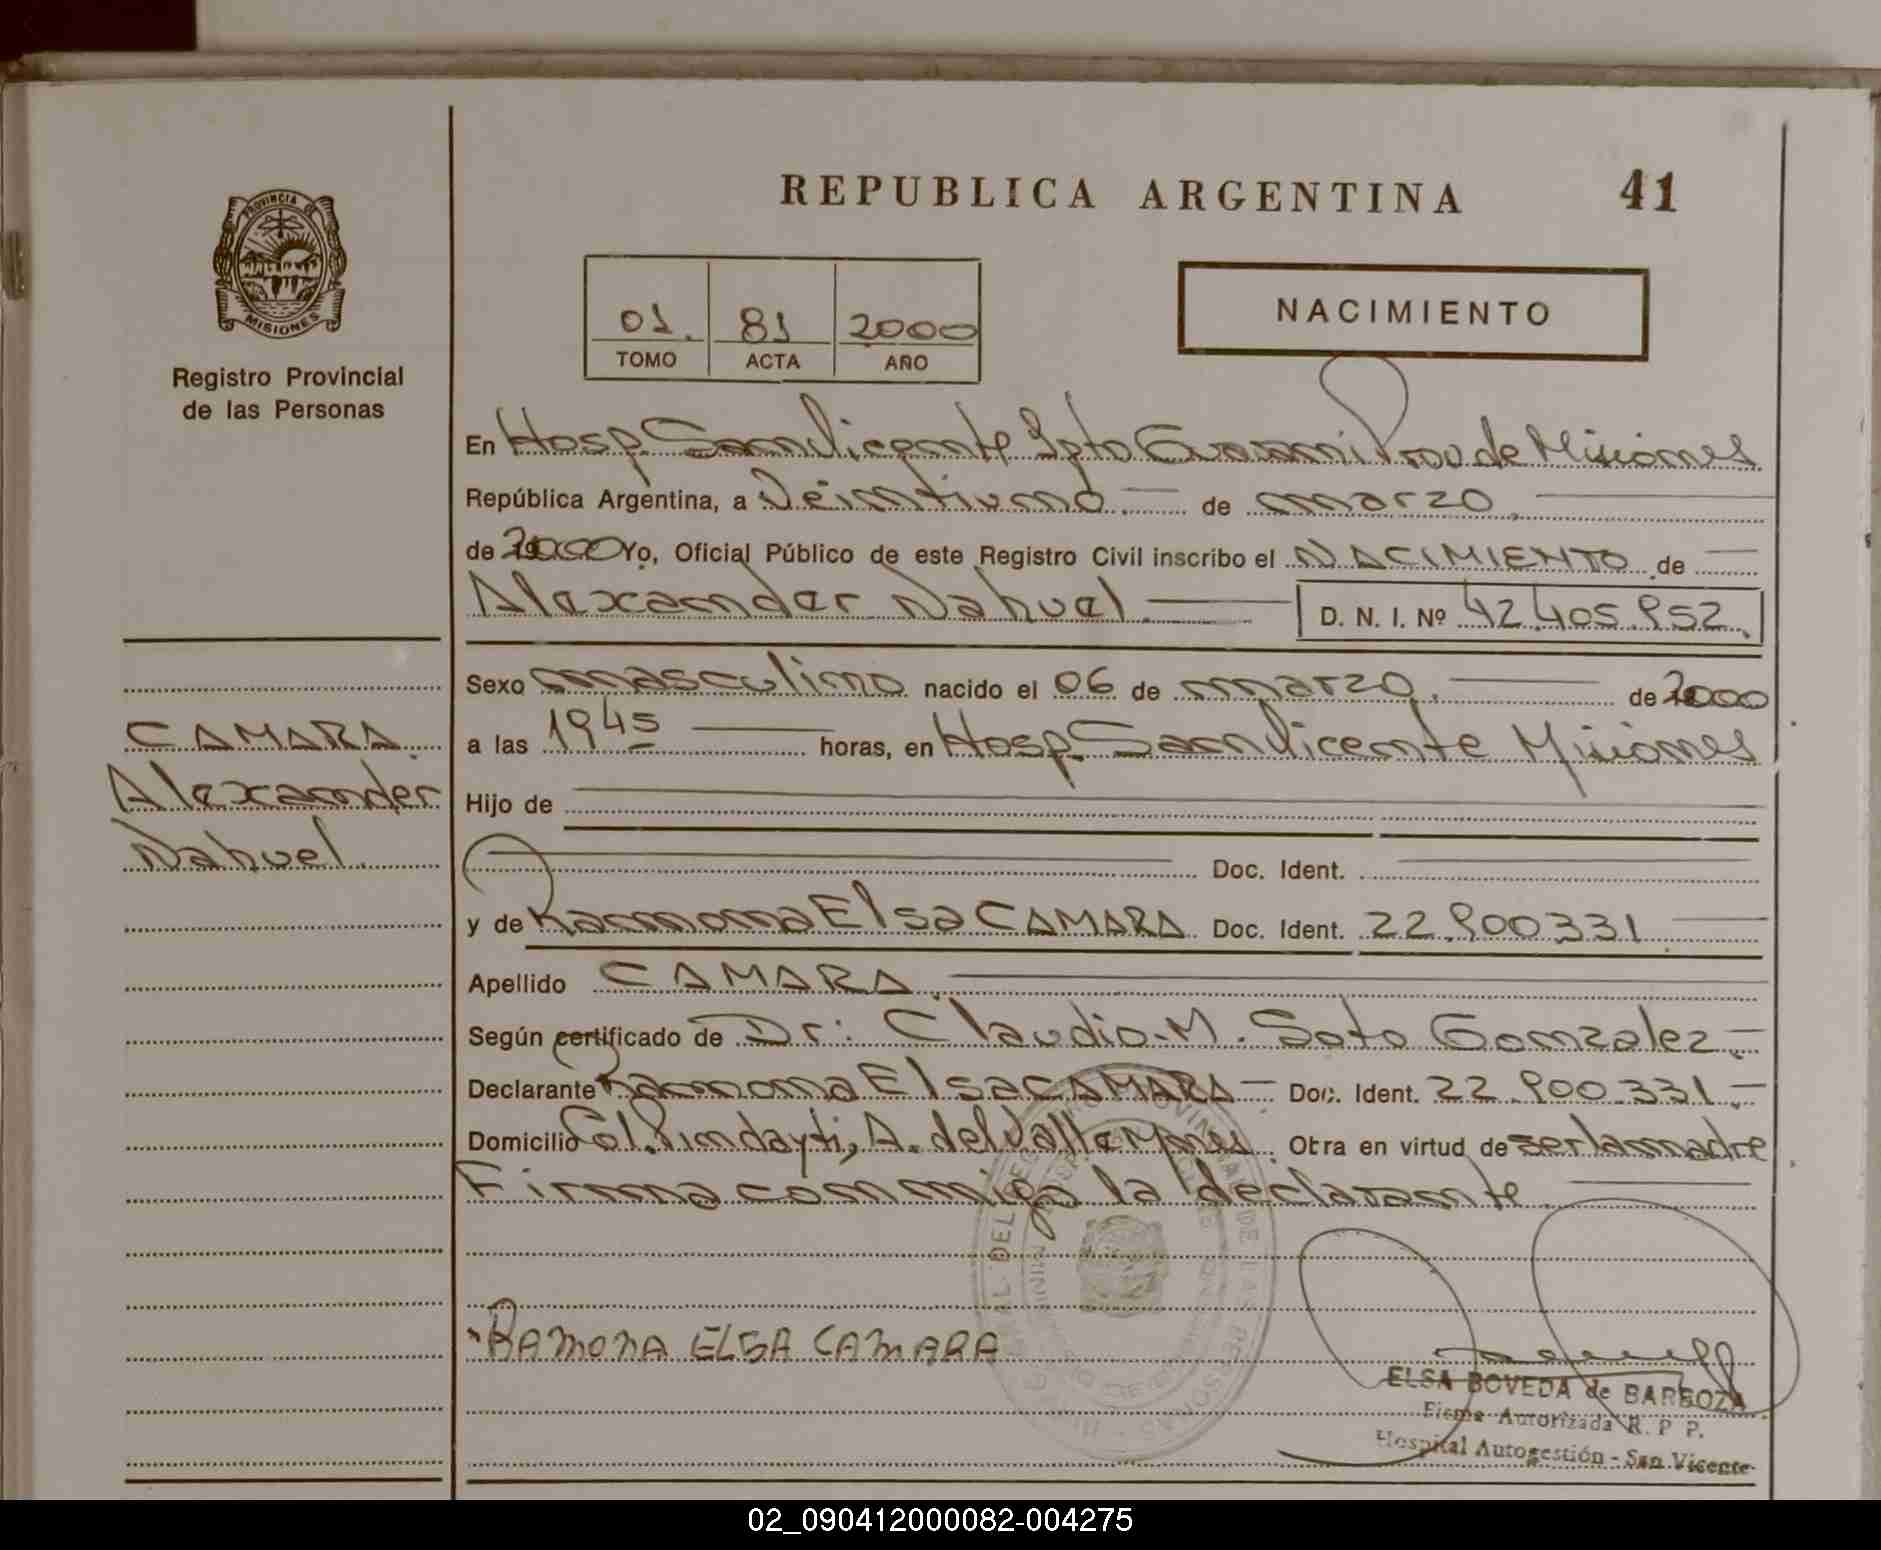 REPUBLICA ARGENTINA 41
PROVINCIA DE
MISIONES
Registro Provincial
de las Personas
01. 81 2000
TOMO ACTA AÑO
NACIMIENTO
En Hosp. San Vicente Dpto Guarani Prov de Misiones
República Argentina, a Veintiuno de marzo
de 2000 Yo, Oficial Público de este Registro Civil inscribo el NACIMIENTO de
Alexander Nahuel D. N. I. Nº 42.405.952.
Sexo masculino nacido el 06 de marzo. de 2000
a las 1945 horas, en Hosp San Vicente Misiones
Hijo de
Doc. Ident.
y de Ramona Elsa CAMARA Doc. Ident. 22.900.331
Apellido CAMARA.
Según certificado de Dr: Claudio M. Soto Gonzalez.
Declarante Ramona Elsa CAMARA Doc. Ident. 22.900.331.
Domicilio Col. Pindayti, A. del Valle Mnes. Otra en virtud de ser la madre
Firma conmigo la declarante.
CAMARA
Alexander
Nahuel
RAMONA ELSA CAMARA
ELSA BOVEDA de BARBOZA
Firma Autorizada R. P. P.
Hospital Autogestión - San Vicente
02_090412000082-004275